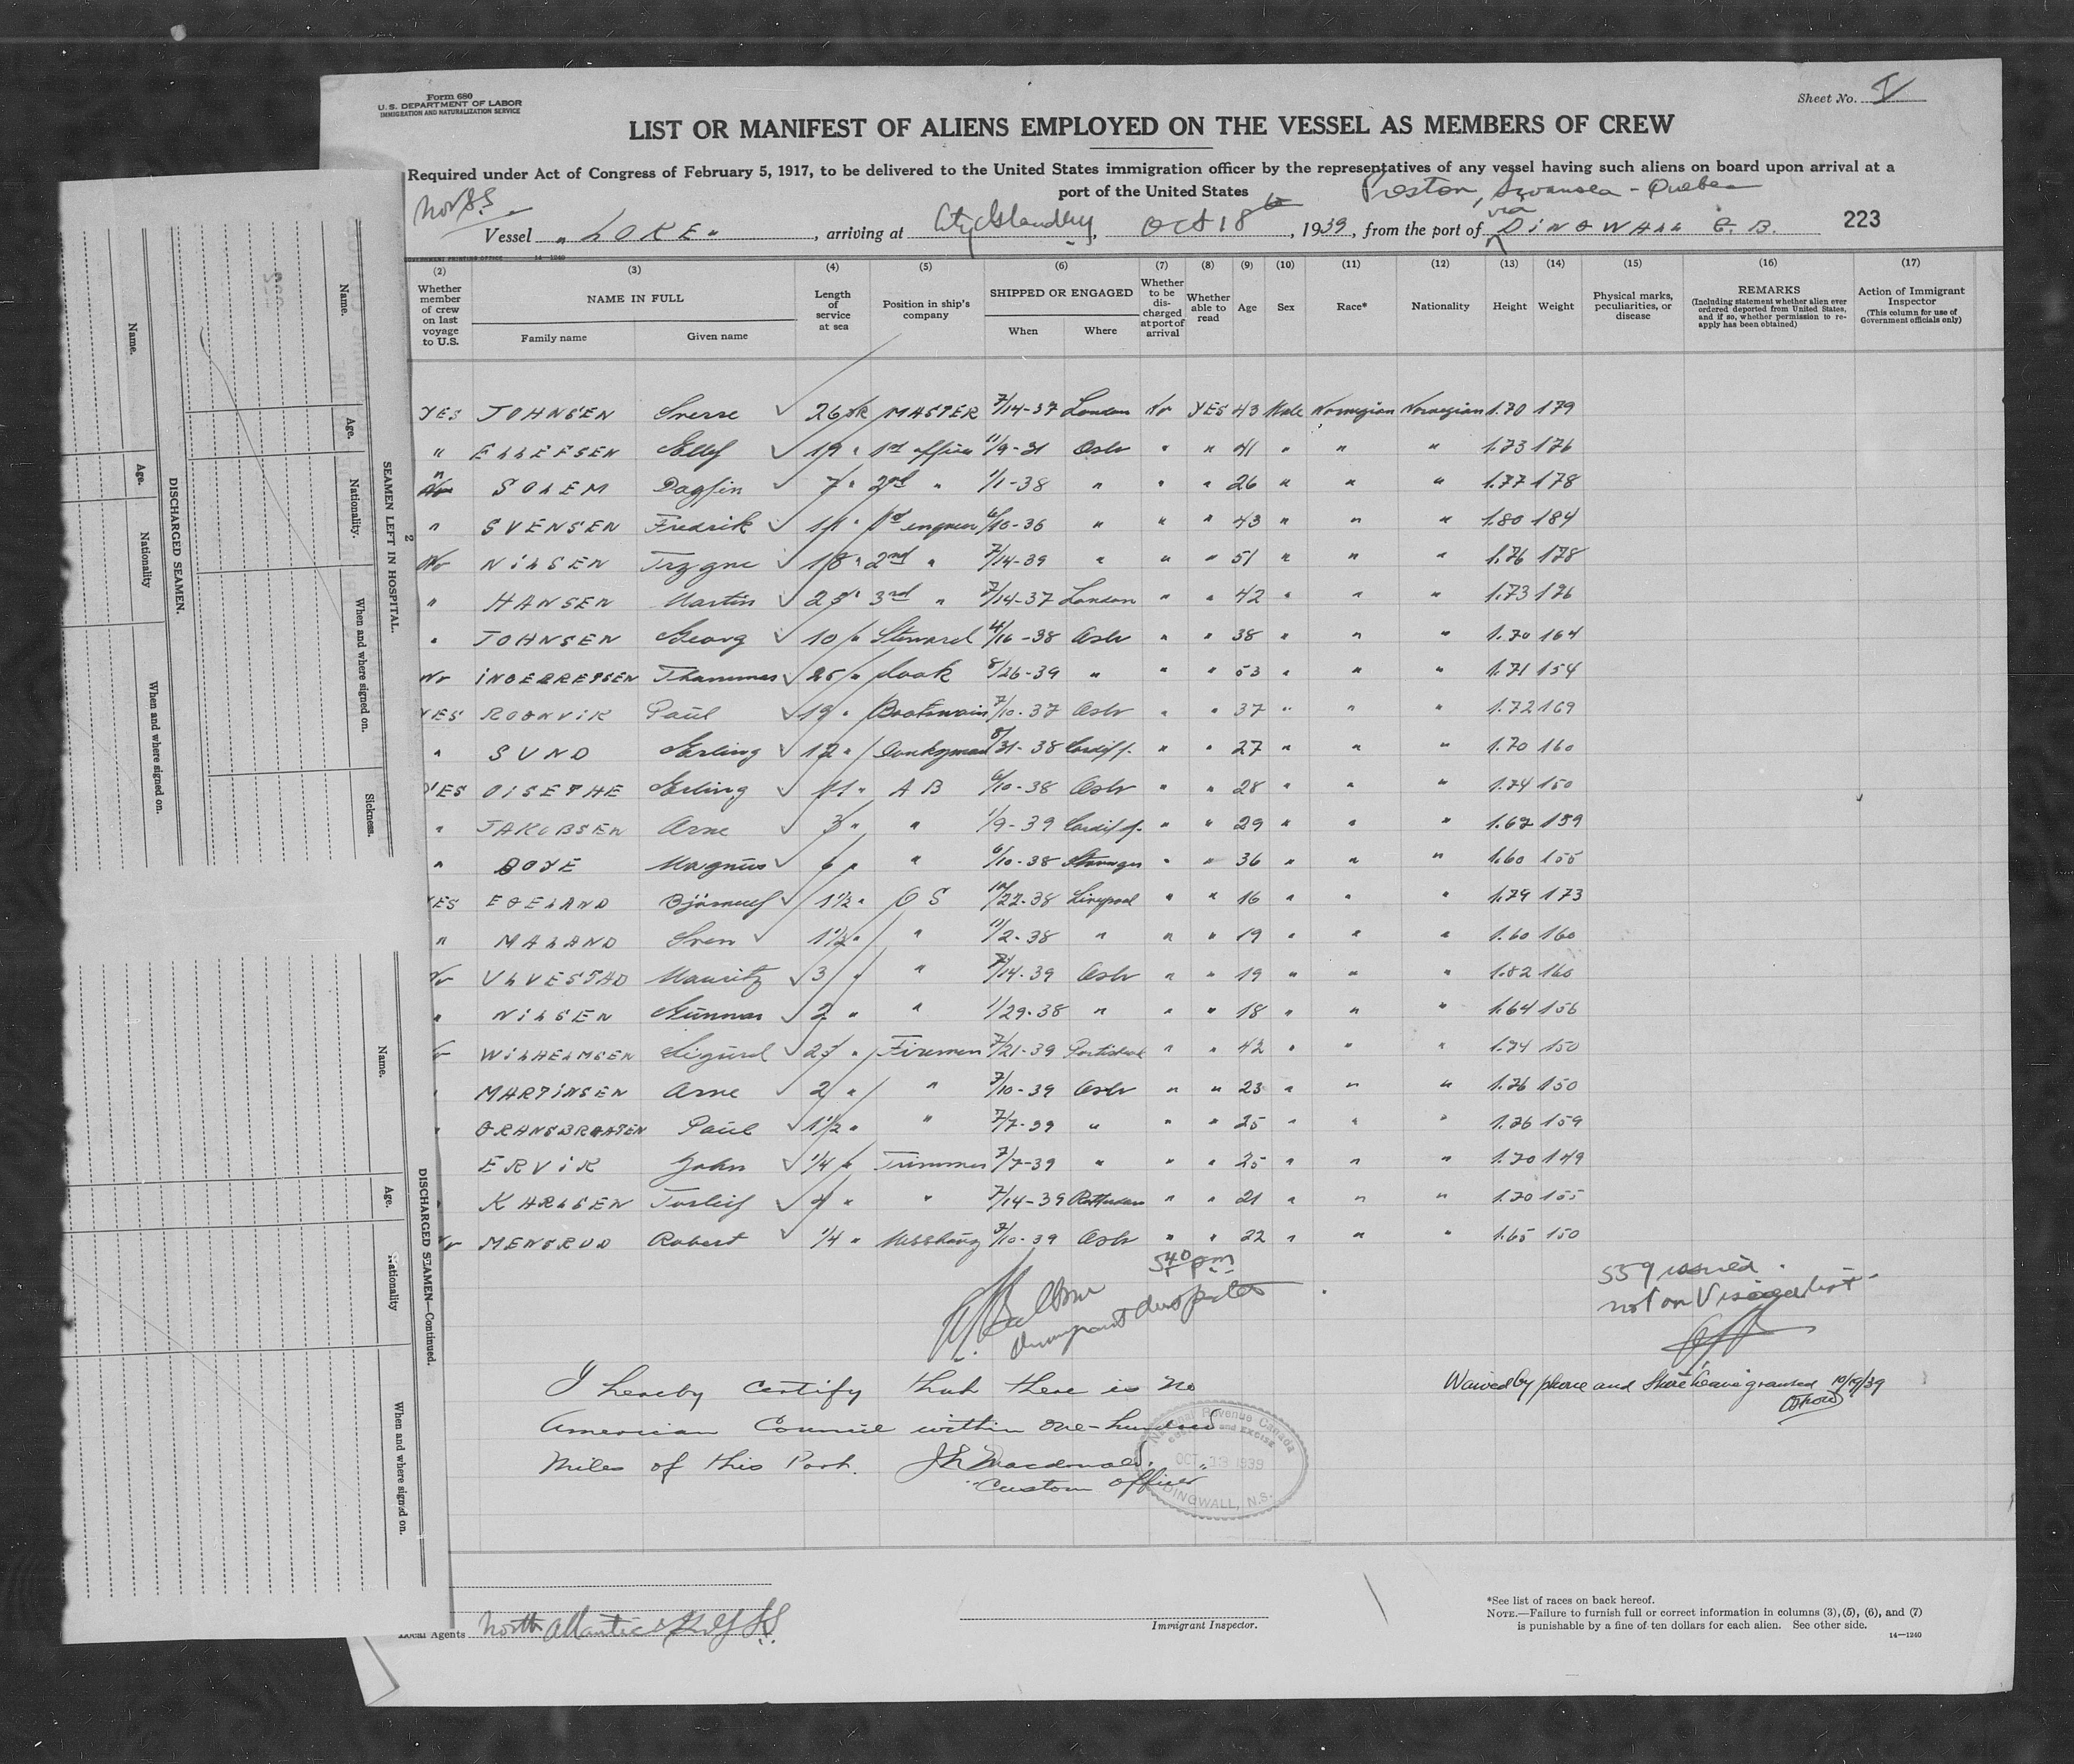 Form 680
U.S. DEPARTMENT OF LABOR
IMMIGRATION AND NATURALIZATION SERVICE
Sheet No. I
LIST OR MANIFEST OF ALIENS EMPLOYED ON THE VESSEL AS MEMBERS OF CREW
Required under Act of Congress of February 5, 1917, to be delivered to the United States immigration officer by the representatives of any vessel having such aliens on board upon arrival at a
port of the United States
Preston, Swansea - Quebec
Nor. S.S.
via
Vessel "LOKE", arriving at City Island NY, Oct 18th, 1939, from the port of DINGWALL C.B. 223
GOVERNMENT PRINTING OFFICE 14—1240
(2) (3) (4) (5) (6) (7) (8) (9) (10) (11) (12) (13) (14) (15) (16) (17)
Whether member of crew on last voyage to U.S. NAME IN FULL Family name Given name Length of service at sea Position in ship's company SHIPPED OR ENGAGED When Where Whether to be discharged at port of arrival Whether able to read Age Sex Race* Nationality Height Weight Physical marks, peculiarities, or disease REMARKS (Including statement whether alien ever ordered deported from United States, and if so, whether permission to reapply has been obtained) Action of Immigrant Inspector (This column for use of Government officials only)
YES JOHNSEN Sverre 26 MASTER 7/14-37 London No YES 43 Male Norwegian Norwegian 1.70 179
" ELLEFSEN Ellef 19 " 1st officer 11/9-31 Oslo " " 41 " " " 1.73 176
" SOLEM Dagfin 7 " 2nd " 1/1-38 " " " 26 " " " 1.77 178
" SVENSEN Fredrik 11 " 1st engineer 6/10-36 " " " 43 " " " 1.80 184
No NILSEN Trygve 18 " 2nd " 7/14-39 " " " 51 " " " 1.76 178
" HANSEN Martin 25 " 3rd " 7/14-37 London " " 42 " " " 1.73 176
" JOHNSEN Georg 10 " Steward 4/16-38 Oslo " " 38 " " " 1.70 164
No INGEBRETSEN Thommas 25 " Cook 8/26-39 " " " 53 " " " 1.71 154
YES ROGNVIK Paul 19 " Boatswain 7/10-37 Oslo " " 37 " " " 1.72 169
" SUND Erling 12 " Donkeyman 8/31-38 Cardiff " " 27 " " " 1.70 160
YES OISETHE Erling 11 " A B 6/10-38 Oslo " " 28 " " " 1.74 150
" JAKOBSEN Arne 3 " " 1/9-39 Cardiff " " 29 " " " 1.67 159
" BOYE Magnus 6 " " 6/10-38 Stavanger " " 36 " " " 1.60 155
YES EGELAND 1 1/2 " O S 10/22-38 Liverpool " " 16 " " " 1.79 173
" MALAND Sven 1 1/2 " " 11/2-38 " " " 19 " " " 1.60 160
No ULVESTAD Mauritz 3 " " 7/14-39 Oslo " " 19 " " " 1.82 160
" NILSEN Gunnar 2 " " 1/29-38 " " " 18 " " " 1.64 156
WILHELMSEN Sigurd 23 " Firemen 7/21-39 " " 42 " " " 1.74 150
MARTINSEN Arne 2 " " 7/10-39 Oslo " " 23 " " " 1.76 150
GRANSBRAATEN Paul 1 1/2 " " 7/7-39 " " " 25 " " " 1.76 159
ERVIK John 1/4 " Trimmer 7/7-39 " " " 25 " " " 1.70 149
KARLSEN Torleif 4 " " 7/14-39 Rotterdam " " 21 " " " 1.70 155
No MENGRUD Robert 1/4 " Messboy 7/10-39 Oslo " " 22 " " " 1.65 150
5 40 pm
Immigrant Inspector
559 issued.
not on Visaed list.
Waived by phone and Shore leave granted 10/19/39
I hereby certify that there is no
American Council within one-hundred
miles of this Port. J R Macdonald.
Custom Officer
National Revenue Canada
CUSTOMS and EXCISE
OCT 13 1939
DINGWALL, N.S.
Local Agents North Atlantic & Gulf SS
Immigrant Inspector.
*See list of races on back hereof.
NOTE.—Failure to furnish full or correct information in columns (3), (5), (6), and (7)
is punishable by a fine of ten dollars for each alien. See other side.
14—1240
SEAMEN LEFT IN HOSPITAL.
Name. Age. Nationality. When and where signed on. Sickness.
DISCHARGED SEAMEN.
Name. Age. Nationality When and where signed on.
DISCHARGED SEAMEN—Continued.
Name. Age. Nationality When and where signed on.
2